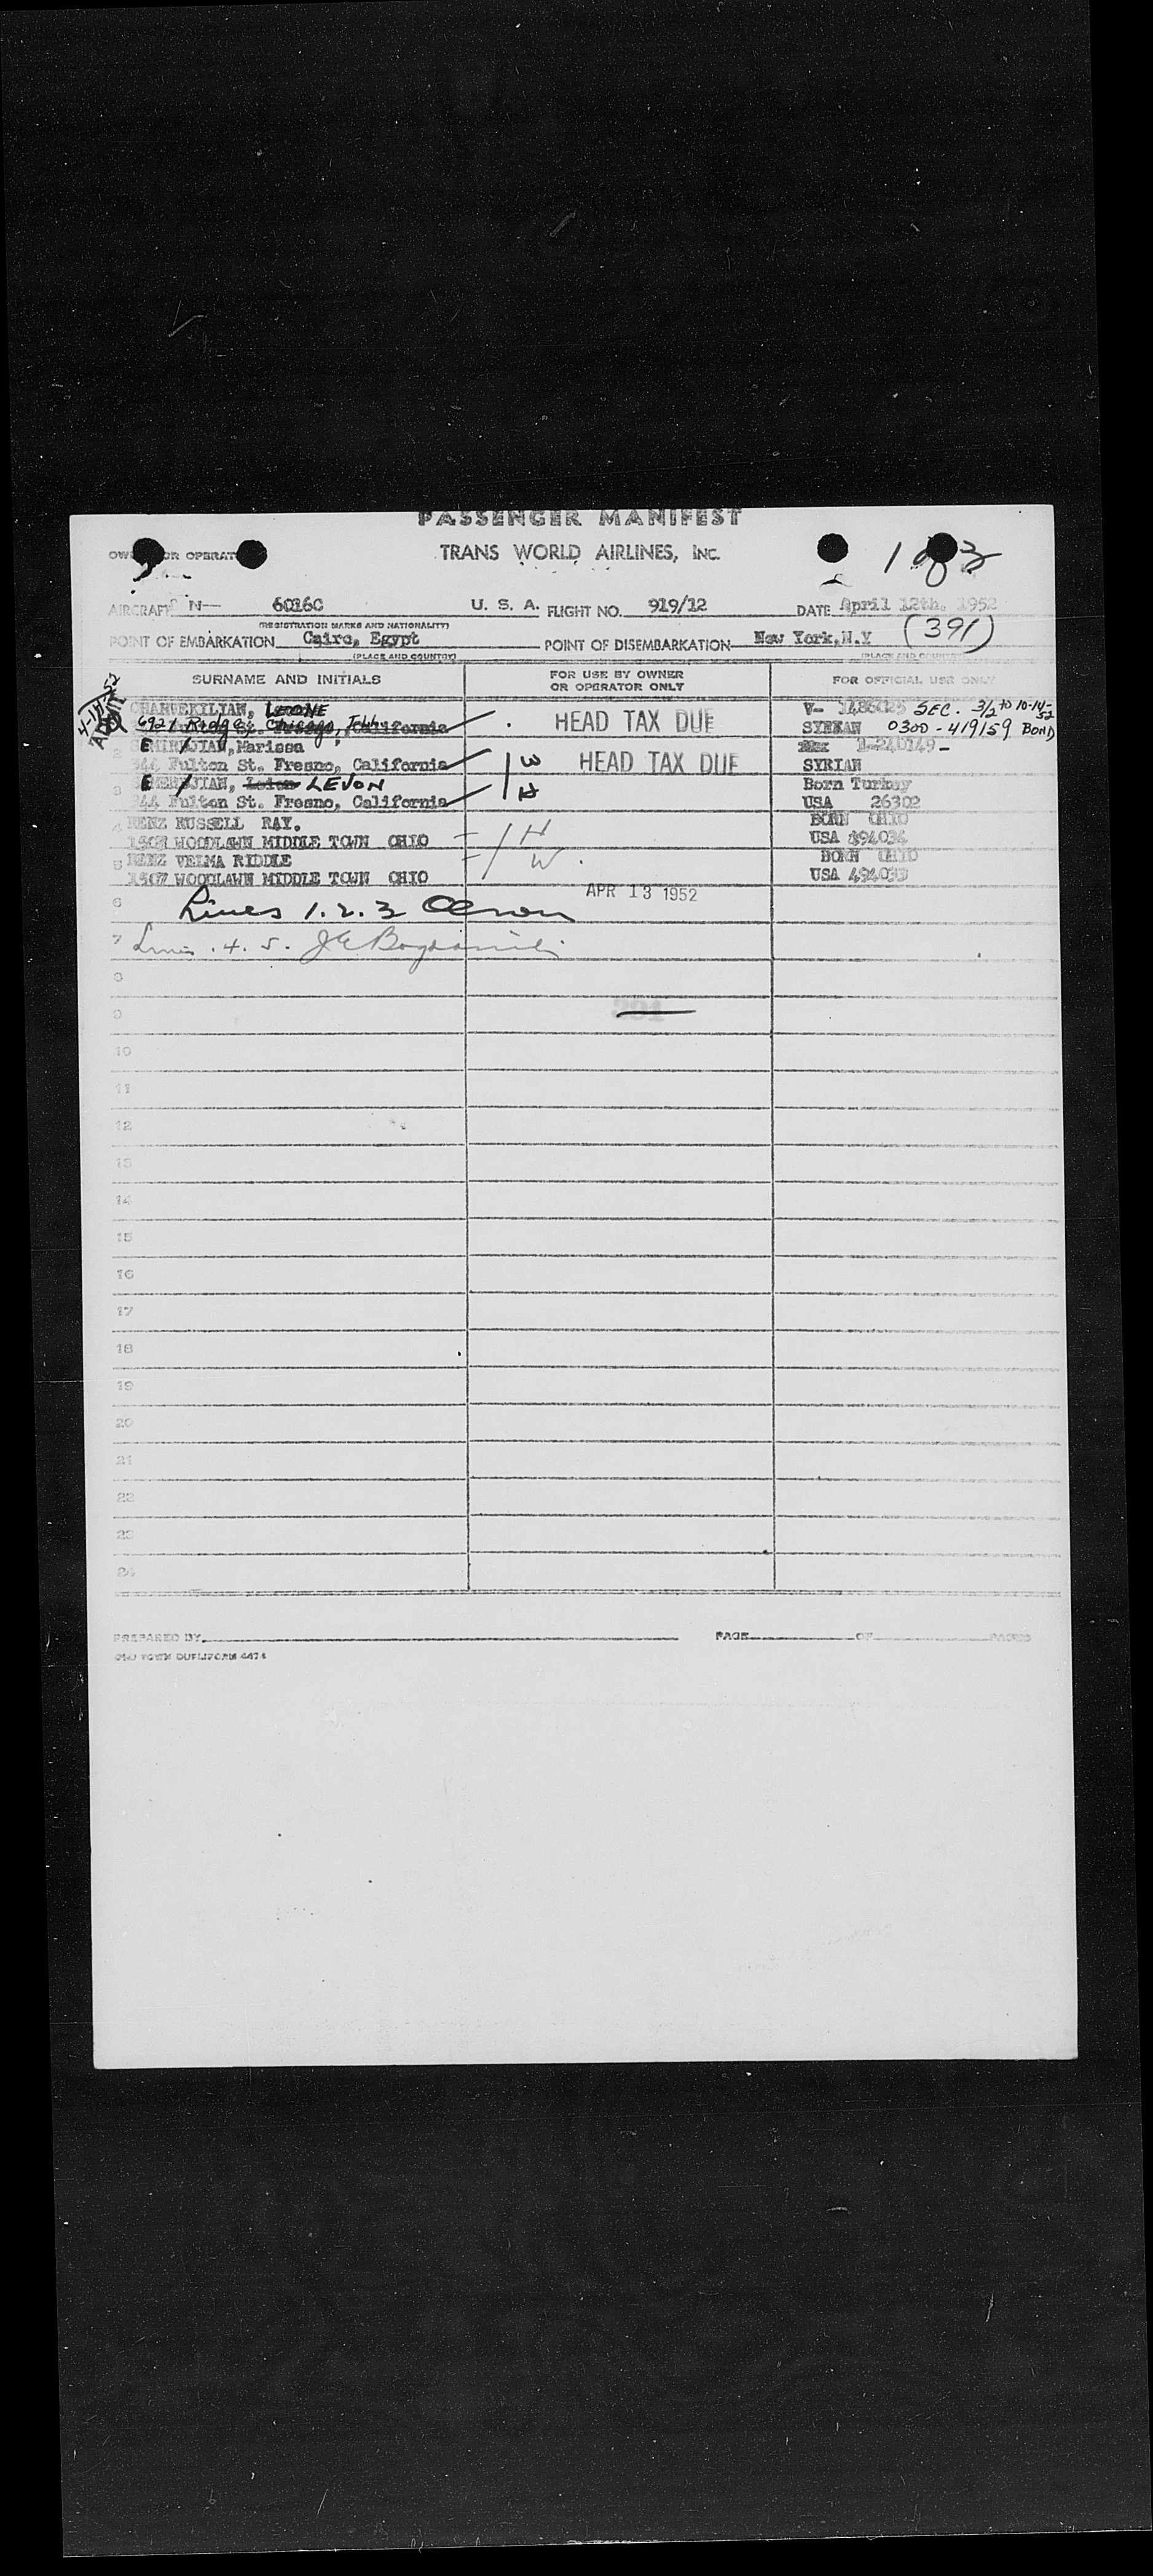 PASSENGER MANIFEST
OWNER OR OPERATOR TRANS WORLD AIRLINES, INC.
AIRCRAFT N— 6016C U. S. A. FLIGHT NO. 919/12 DATE April 12th, 1952
(REGISTRATION MARKS AND NATIONALITY)
(391)
POINT OF EMBARKATION Cairo, Egypt POINT OF DISEMBARKATION New York, N.Y
(PLACE AND COUNTRY) (PLACE AND COUNTRY)
SURNAME AND INITIALS FOR USE BY OWNER OR OPERATOR ONLY FOR OFFICIAL USE ONLY
4-14-52
LEONE V- SEC. 3/2 to 10-14-52
6921 Ridge California HEAD TAX DUE SYRIAN 0300-419159 BOND
2 Marissa
Fulton St. Fresno, California W HEAD TAX DUE SYRIAN
3 LEVON Born Turkey
Fulton St. Fresno, California H USA 26302
4 RENZ RUSSELL RAY. H BORN OHIO
1507 WOODLAWN MIDDLE TOWN OHIO USA 494034
5 RENZ VELMA RIDDLE W BORN OHIO
1507 WOODLAWN MIDDLE TOWN OHIO USA
APR 13 1952
6 Lines 1. 2. 3
7 Lines . 4. 5.
8
9
10
11
12
13
14
15
16
17
18
19
20
21
22
23
24
PREPARED BY PAGE OF PAGES